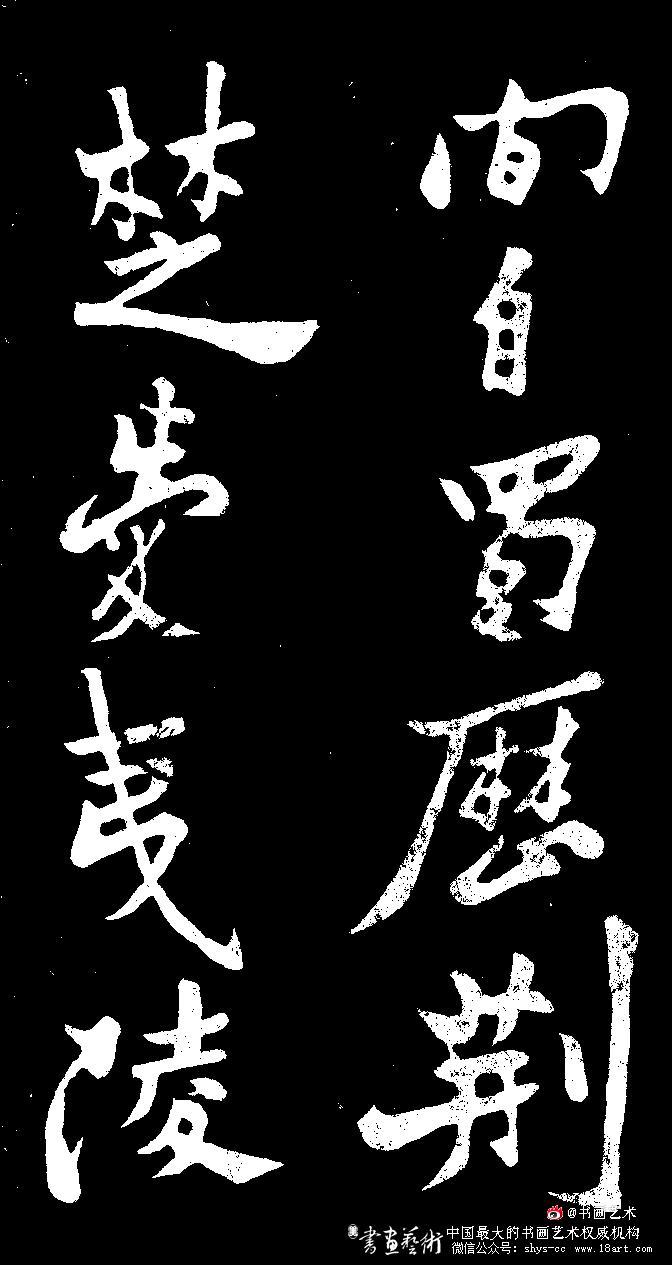 間自蜀歷荊
楚愛夷陵
@书画艺术
書畫藝術
中国最大的书画艺术权威机构
微信公众号：shys-cc www.18art.com